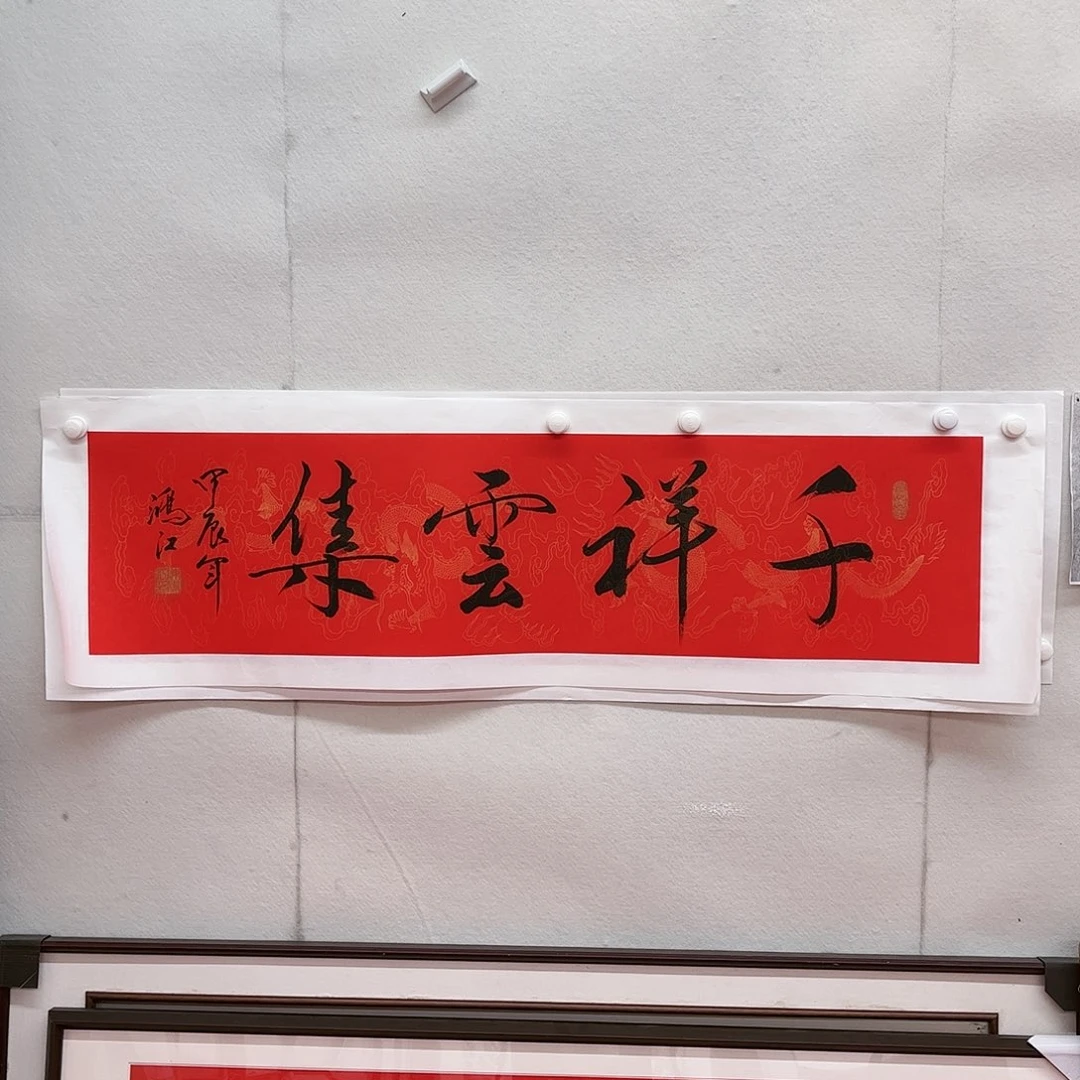 千祥雲集
甲辰年
鴻江